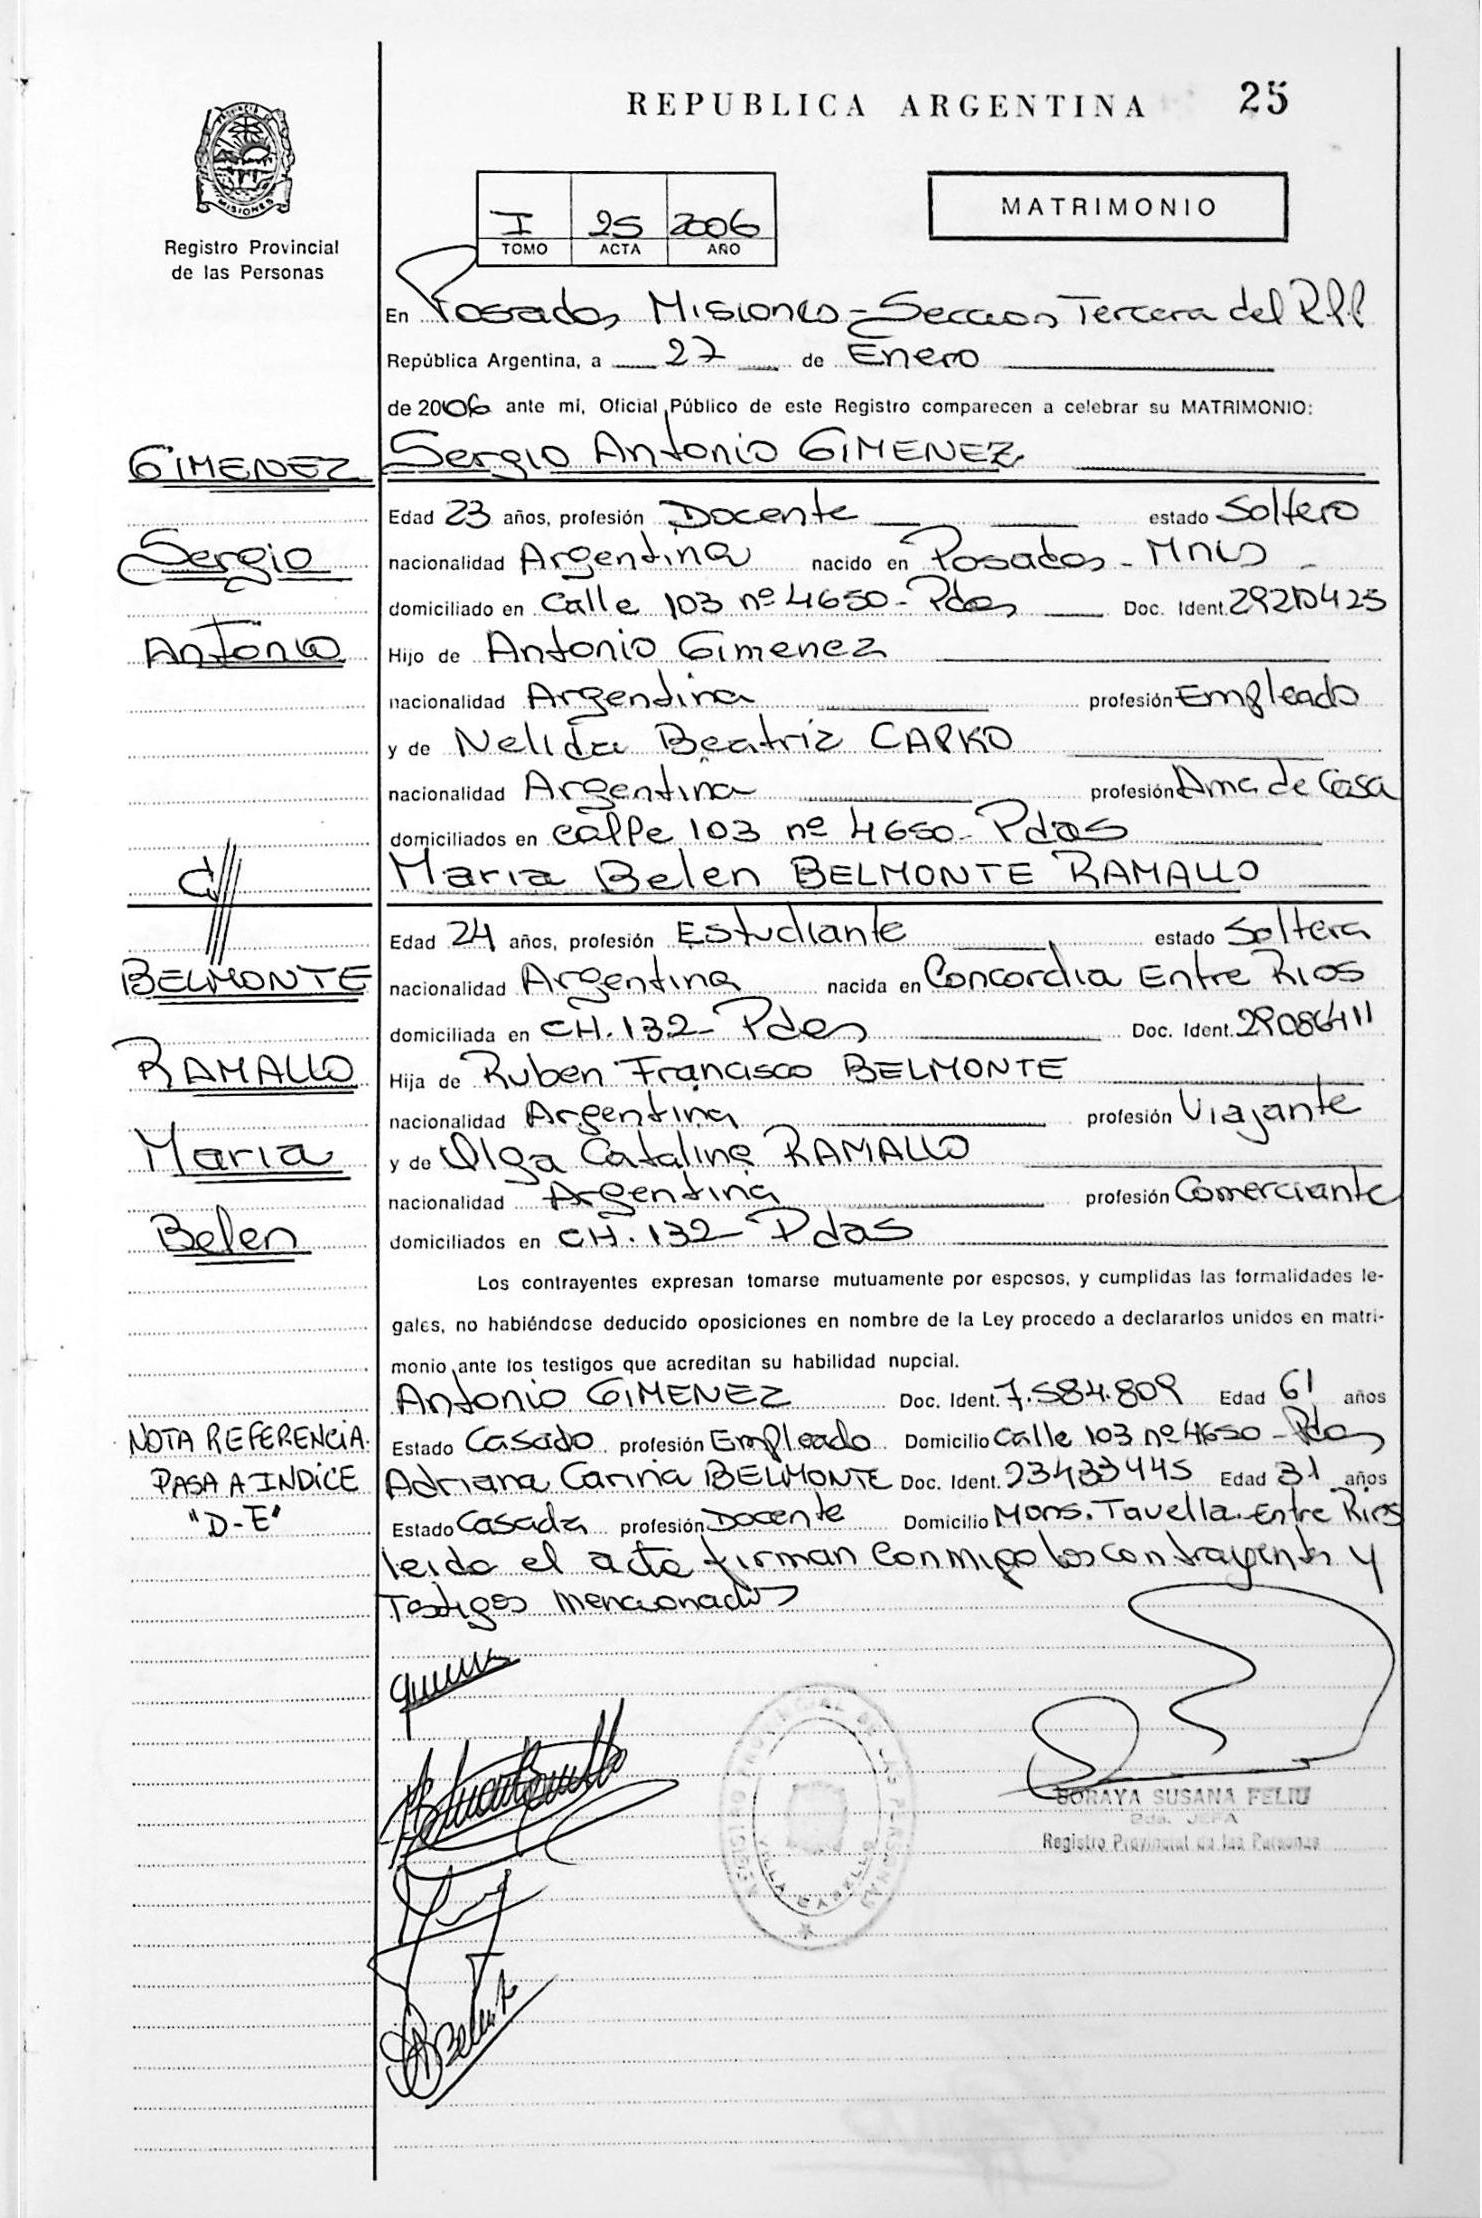 REPUBLICA ARGENTINA 25
PROVINCIA DE
MISIONES
Registro Provincial
de las Personas
I 25 2006
TOMO ACTA AÑO
MATRIMONIO
En Posadas Misiones - Seccion Tercera del R.P.P
República Argentina, a 27 de Enero
de 2006 ante mi, Oficial Público de este Registro comparecen a celebrar su MATRIMONIO:
GIMENEZ
Sergio Antonio GIMENEZ
Edad 23 años, profesión Docente estado Soltero
Sergio
nacionalidad Argentina nacido en Posadas - Mnes
domiciliado en Calle 103 nº 4650 - Pdas Doc. Ident.
Antonio
Hijo de Antonio Gimenez
nacionalidad Argentina profesión Empleado
y de Nelida Beatriz CAPKO
nacionalidad Argentina profesión Ama de Casa
domiciliados en calle 103 nº 4650 - Pdas
C//
Maria Belen BELMONTE RAMALLO
Edad 24 años, profesión Estudiante estado Soltera
BELMONTE
nacionalidad Argentina nacida en Concordia Entre Rios
domiciliada en CH. 132 - Pdas Doc. Ident. 29086411
RAMALLO
Hija de Ruben Francisco BELMONTE
nacionalidad Argentina profesión Viajante
Maria
y de Olga Catalina RAMALLO
nacionalidad Argentina profesión Comerciante
Belen
domiciliados en CH. 132 - Pdas
Los contrayentes expresan tomarse mutuamente por esposos, y cumplidas las formalidades le-
gales, no habiéndose deducido oposiciones en nombre de la Ley procedo a declararlos unidos en matri-
monio ante los testigos que acreditan su habilidad nupcial.
Antonio GIMENEZ Doc. Ident. 7.584.809 Edad 61 años
NOTA REFERENCIA.
Estado Casado profesión Empleado Domicilio Calle 103 nº 4650 - Pdas
PASA A INDICE
Adriana Carina BELMONTE Doc. Ident. 23433445 Edad 31 años
"D-E"
Estado Casada profesión Docente Domicilio Mons. Tavella. Entre Rios
leido el acta firman conmigo los contrayentes y
Testigos mencionados
REGISTRO PROVINCIAL DE LAS PERSONAS
VILLA CABELLO
SORAYA SUSANA FELIU
2da. JEFA
Registro Provincial de las Personas